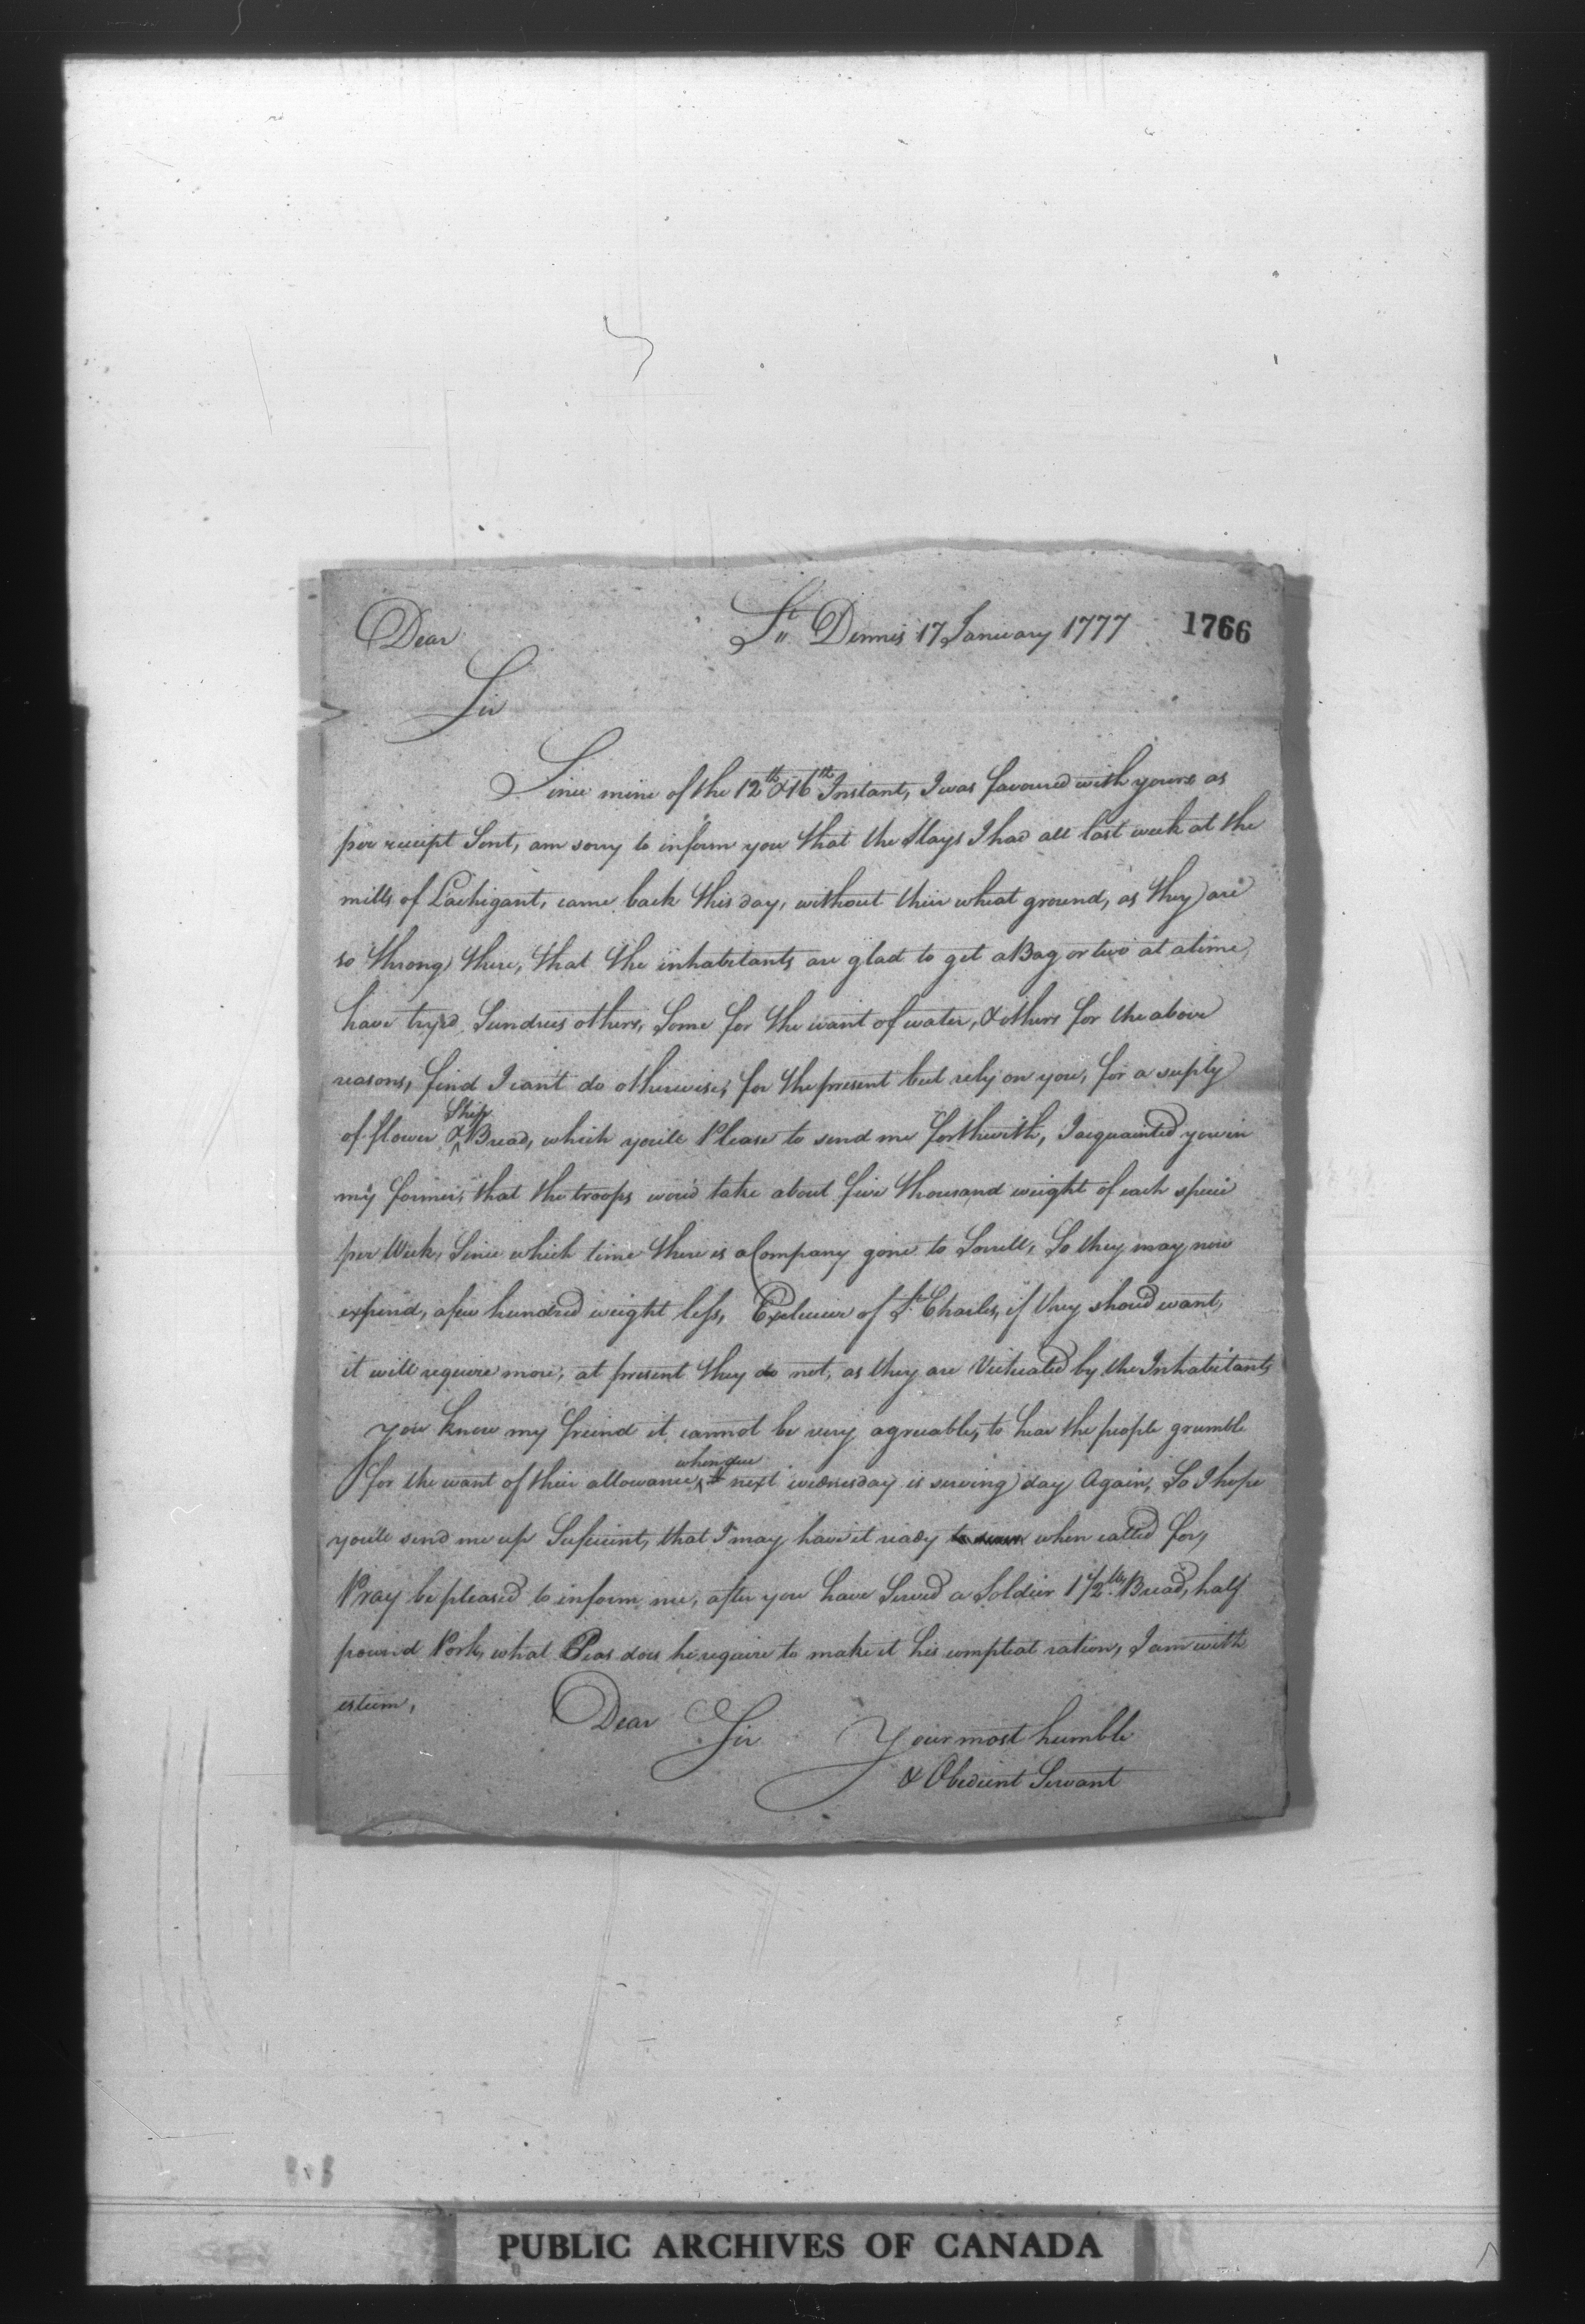 Dear St. Dennis 17 January 1777 1766
Sir
Since mine of the 12th & 16th Instant, I was favoured with yours as
per receipt Sent, am sorry to inform you that the slays I had all last week at the
mills of Lachigant, came back this day, without their wheat ground, as they are
so throng there, that the inhabitants are glad to get a Bag or two at a time,
have tryed Sundries others, Some for the want of water, & others for the above
reasons, find I can't do otherwise, for the present but rely on you, for a suply
of flower & Ship Bread, which you'll Please to send me forthwith, I acquainted you in
my former, that the troops wou'd take about five thousand weight of each specie
per Week, Since which time there is a Company gone to Sorrell, So they may now
expend, a few hundred weight less, Exclusive of St. Charles, if they shoud want,
it will require more, at present they do not, as they are Victualed by the Inhabitants
you know my freind it cannot be very agreable, to hear the people grumble
for the want of their allowance, when due next wednesday is serving day Again, So I hope
you'll send me up Suficient, that I may have it ready when called for,
Pray be pleased to inform me, after you have Served a Soldier 1 1/2 lb. Bread, half
pound Pork, what Peas does he require to make it his compleat ration, I am with
esteem,
Dear Sir Your most humble
& Obedient Servant
PUBLIC ARCHIVES OF CANADA